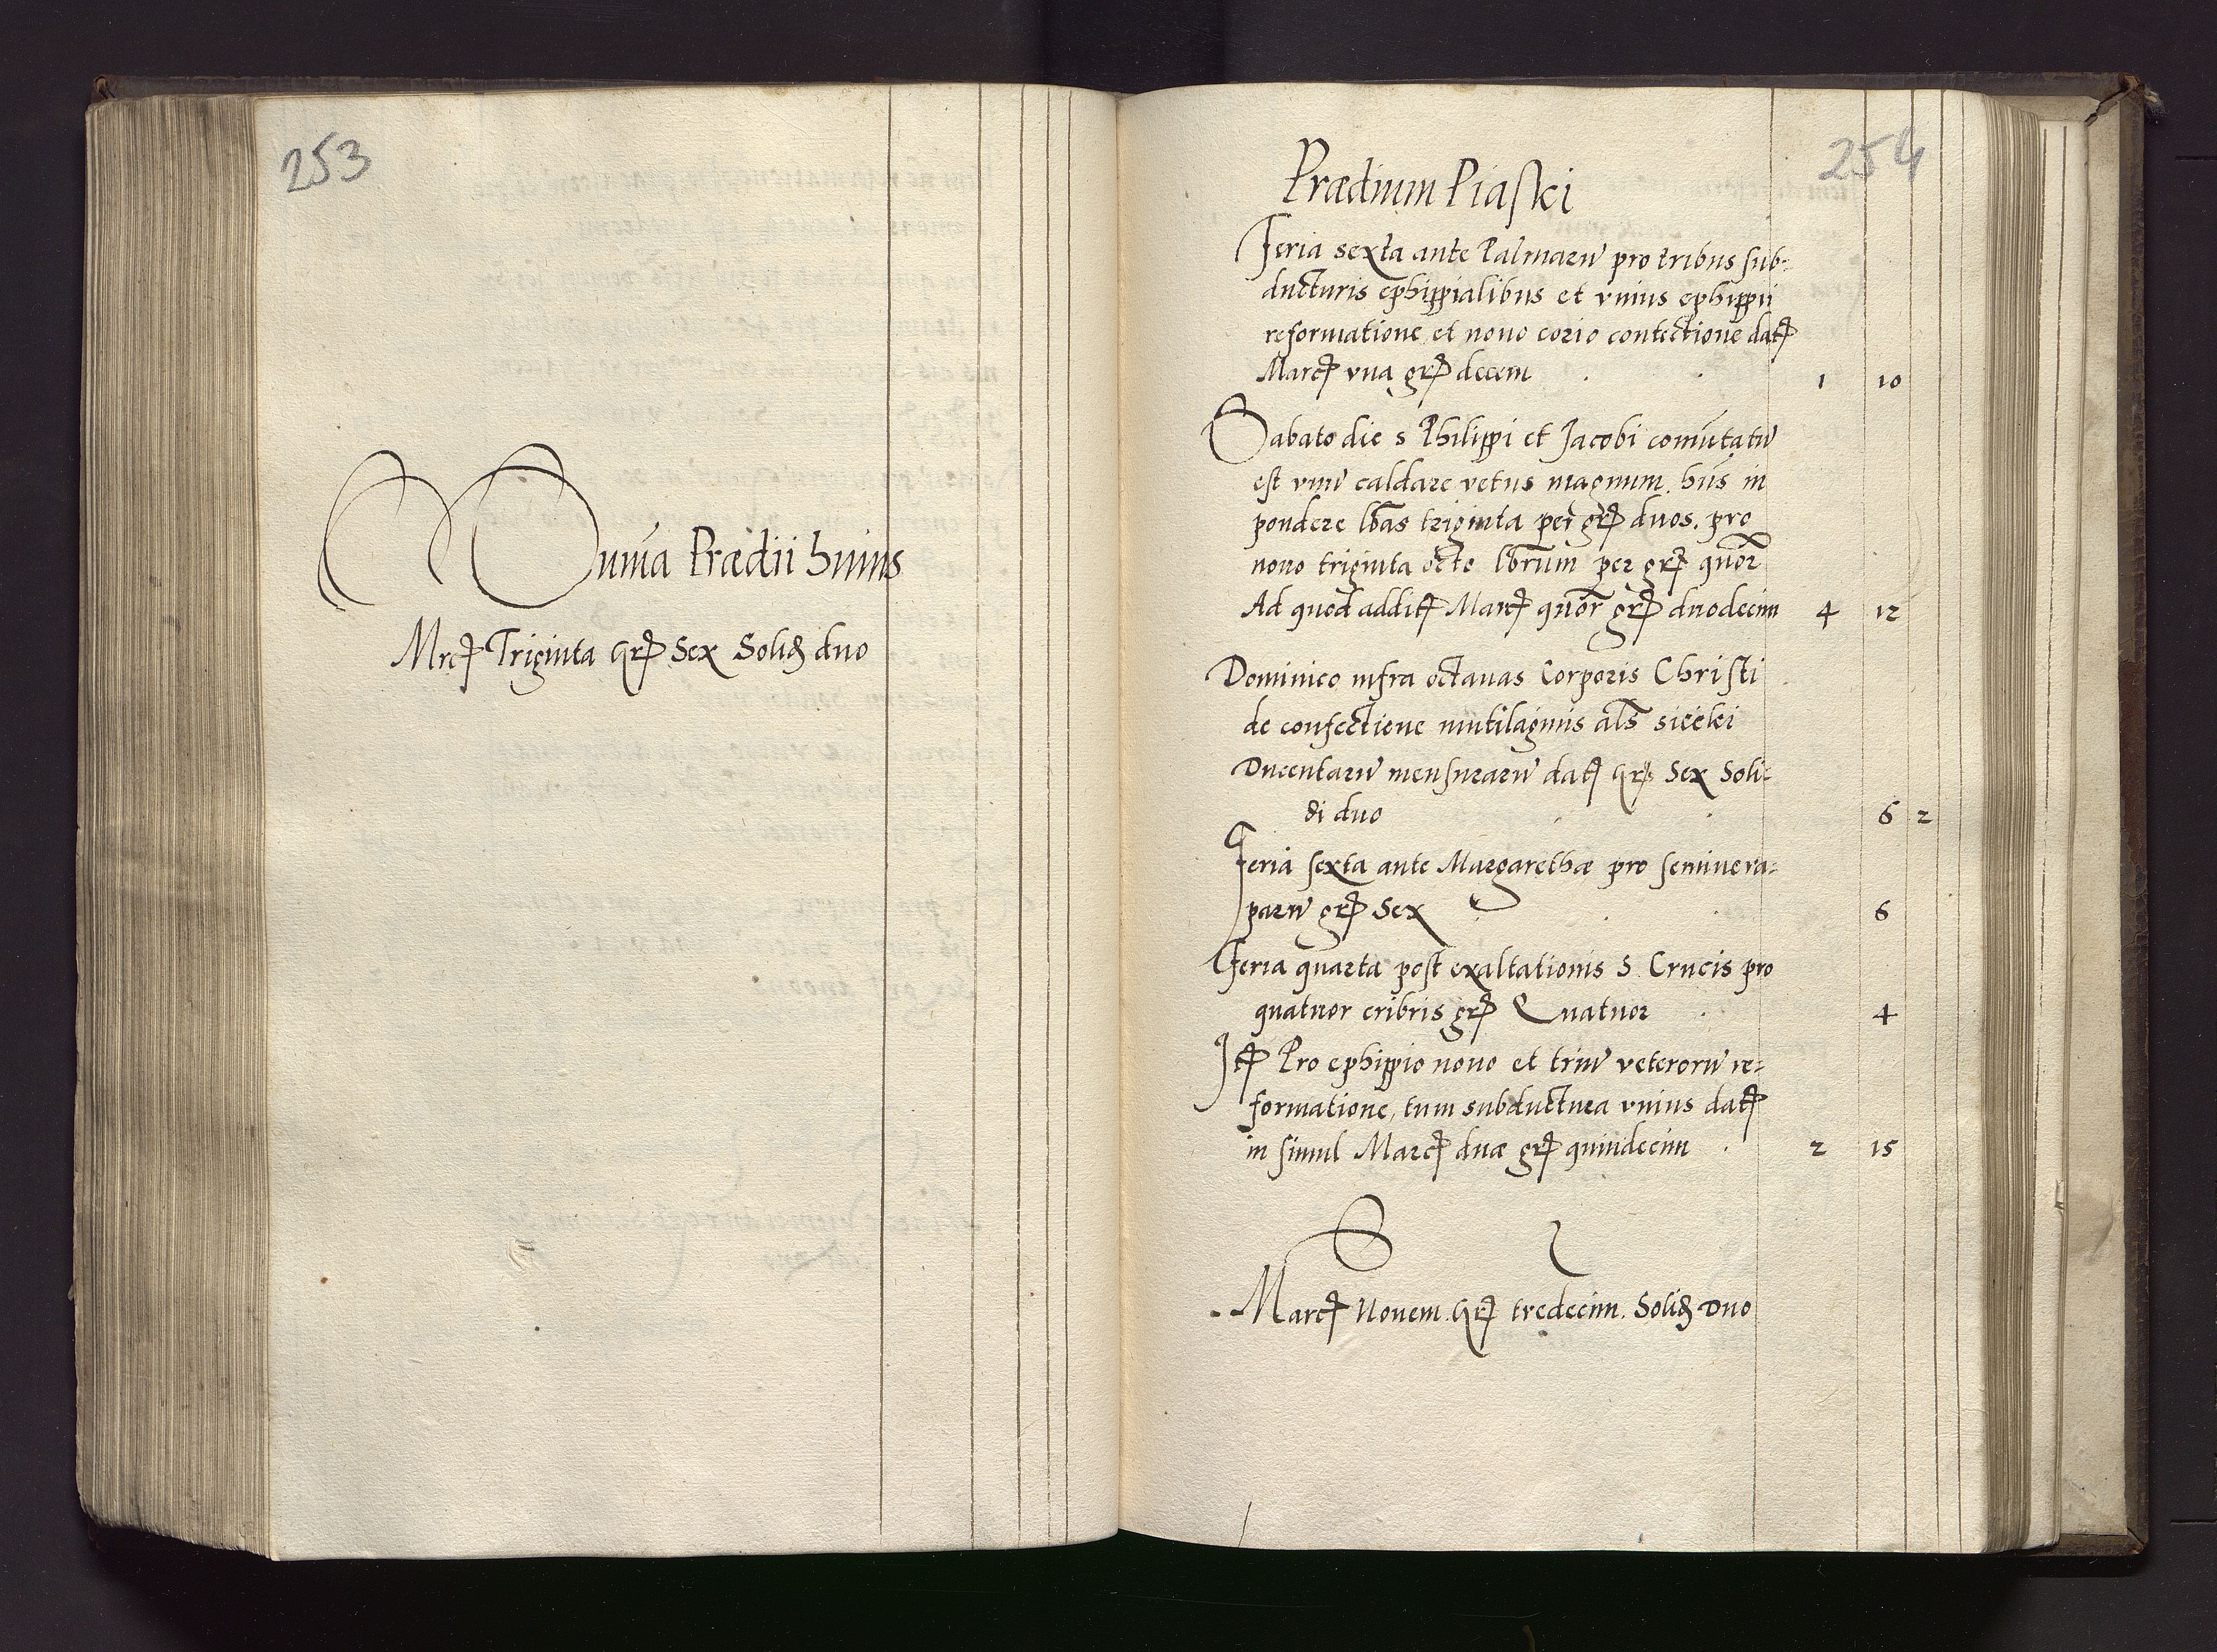 253
Sum̃a Prædii huius
Mrcꝭ Triginta Grꝭ Sex Solid duo
254
Prædium Piaski
Feria sexta ante Palmarũ pro tribus sub-
ducturis ephippialibus et vnius ephippii
reformatione et nouo corio contectione datꝭ
Marcꝭ vna grꝭ decem 1 10
Sabato die s Philippi et Jacobi com̃utatũ
est vnũ caldare vetus magnum. hñs in
pondere lb̃as triginta per grꝭ duos. pro
nouo triginta octo lb̃rum per grꝭ quõr
Ad quod additꝭ Marcꝭ quõr grꝭ duodecim 4 12
Dominico infra octauas Corporis Christi
de confectione mutilaginis als̃ sieċzki
Ducentarũ mensurarũ datꝭ Grꝭ Sex Soli-
di duo 6 2
Feria sexta ante Margarethæ pro semine ra-
parũ grꝭ Sex 6
Feria quarta post exaltationis S. Crucis pro
quatuor cribris grꝭ Quatuor 4
Itꝭ Pro ephippio nouo et triũ veterorũ re-
formatione, tum subductura vnius datꝭ
in simul Marcꝭ duæ grꝭ quindecim 2 15
S
Marcꝭ Nouem. Grꝭ tredecim. Solid Duo